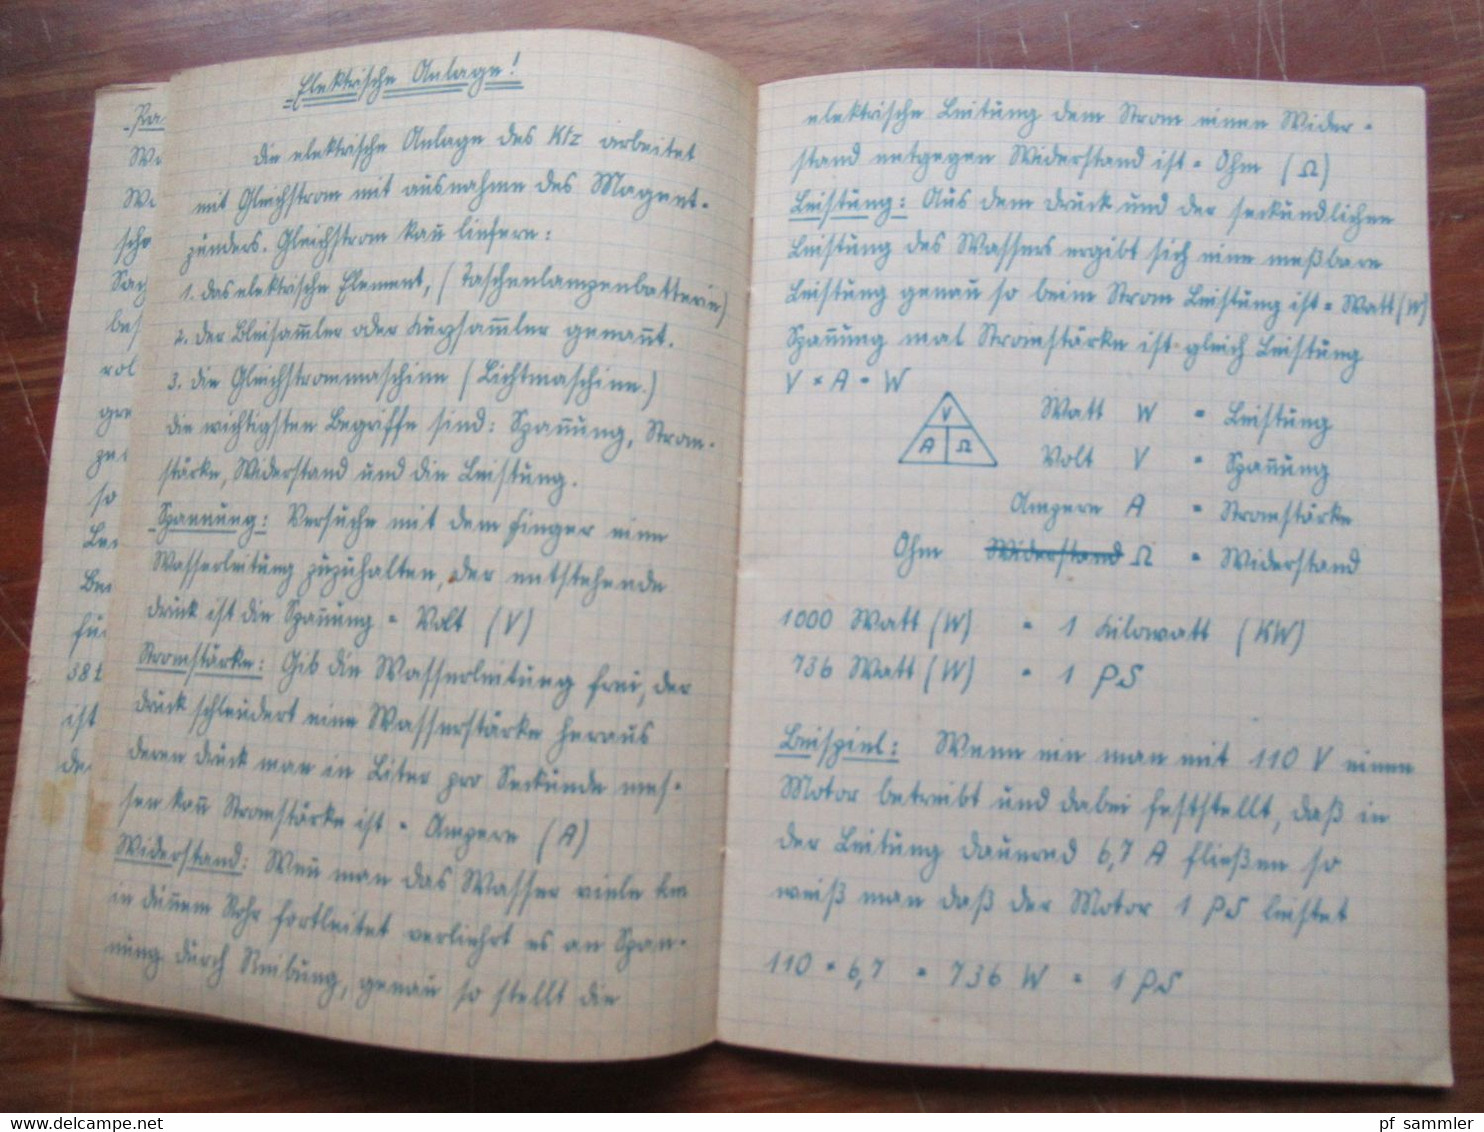 Elektrische Anlage!
Die elektrische Anlage des Kfz arbeitet
mit Gleichstrom mit ausnahme des Magnet-
zünders. Gleichstrom kan̄ liefern:
1. Das elektrische Element, (Taschenlampenbatterie)
2. Der Bleisam̄ler oder Kurzsam̄ler genan̄t.
3. Die Gleichstrommaschine (Lichtmaschine.)
Die wichtigsten Begriffe sind: Span̄ung, Strom-
stärke, Widerstand und die Leistung.
Spannung: Versuche mit dem Finger eine
Wasserleitung zuzuhalten, der entstehende
Druck ist die Span̄ung = Volt (V)
Stromstärke: Gib die Wasserleitung frei, der
Druck schleudert eine Wasserstärke heraus
deren Druck man in Liter pro Sekunde mes-
sen kan̄ Stromstärke ist = Ampere (A)
Widerstand: Wen̄ man das Wasser viele km
in dün̄em Rohr fortleitet verliehrt es an Span-
nung durch Reibung, genau so stellt die
elektrische Leitung dem Strom einen Wider-
stand entgegen Widerstand ist = Ohm (Ω)
Leistung: Aus dem Druck und der sekündlichen
Leistung des Wassers ergibt sich eine meßbare
Leistung genau so beim Strom Leistung ist = Watt (W)
Span̄ung mal Stromstärke ist gleich Leistung
V × A = W
V
A Ω
Watt W = Leistung
Volt V = Span̄ung
Ampere A = Stromstärke
Ohm Widerstand Ω = Widerstand
1000 Watt (W) = 1 Kilowatt (KW)
736 Watt (W) = 1 PS
Beispiel: Wenn ein man mit 110 V einen
Motor betreibt und dabei feststellt, daß in
der Leitung dauernd 6,7 A fließen so
weiß man daß der Motor 1 PS leistet
110 × 6,7 = 736 W = 1 PS
www.delcampe.net
pf_sammler